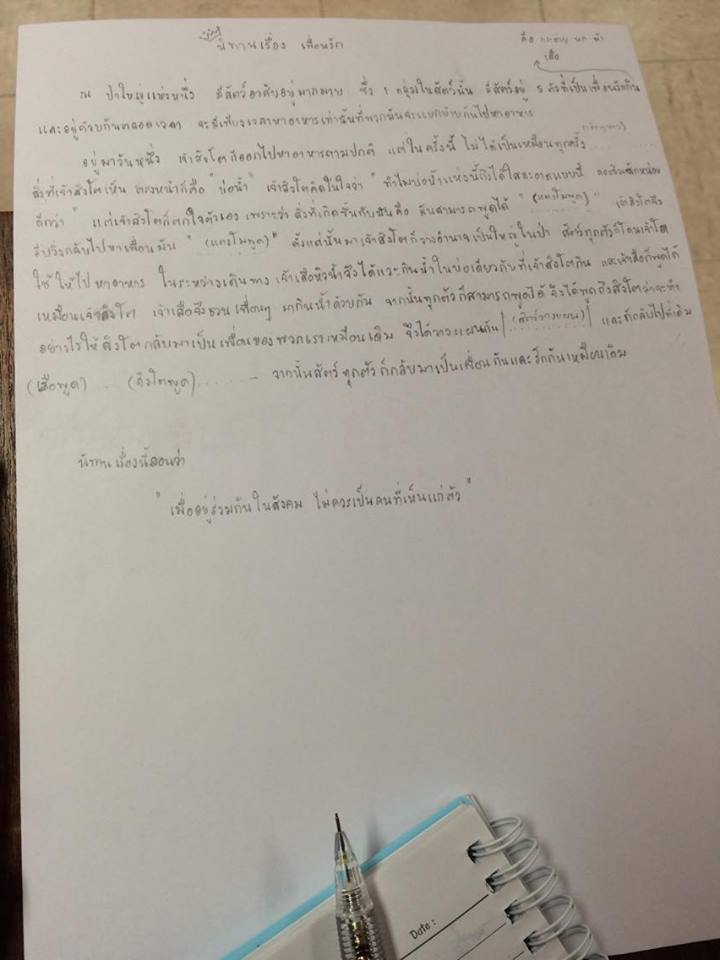 นิทานเรื่อง เพื่อนรัก
คือ กระต่าย นก ม้า
เสือ
ณ ป่าใหญ่แห่งหนึ่ง มีสัตว์อาศัยอยู่มากมาย ซึ่ง 1 กลุ่มในสัตว์นั้น มีสัตว์อยู่ 5 ตัวที่เป็นเพื่อนรักกัน
และอยู่ด้วยกันตลอดเวลา จะมีเพียงเวลาหาอาหารเท่านั้นที่พวกมันจะแยกย้ายกันไปหาอาหาร
อยู่มาวันหนึ่ง เจ้าสิงโตก็ออกไปหาอาหารตามปกติ แต่ในครั้งนี้ ไม่ได้เป็นเหมือนทุกครั้ง
สิ่งที่เจ้าสิงโตเห็น ตรงหน้าก็คือ "บ่อน้ำ" เจ้าสิงโตคิดในใจว่า "ทำไมบ่อน้ำแห่งนี้ถึงได้ใสสะอาดแบบนี้ ลองชิมสักหน่อย
ดีกว่า" แต่เจ้าสิงโตก็ตกใจตัวเอง เพราะว่า สิ่งที่เกิดขึ้นกับมันคือ มันสามารถพูดได้ " (แตงโมพูด) " เจ้าสิงโตจึง
รีบวิ่งกลับไปหาเพื่อนมัน " (แตงโมพูด) " ตั้งแต่นั้นมาเจ้าสิงโตก็วางอำนาจเป็นใหญ่ในป่า สัตว์ทุกตัวก็โดนเจ้าโต
ใช้ให้ไปหาอาหาร ในระหว่างเดินทาง เจ้าเสือหิวน้ำจึงได้แวะกินน้ำในบ่อเดียวกับที่เจ้าสิงโตกิน และเจ้าเสือก็พูดได้
เหมือนเจ้าสิงโต เจ้าเสือจึงชวนเพื่อนๆ มากินน้ำด้วยกัน จากนั้นทุกตัวก็สามารถพูดได้ จึงได้พูดถึงสิงโตว่าจะทำ
อย่างไรให้สิงโตกลับมาเป็นเพื่อนของพวกเราเหมือนเดิม จึงได้วางแผนกัน (สัตว์วางแผน) และก็กลับไปที่เดิม
(เสือพูด) .. (สิงโตพูด)....... - จากนั้นสัตว์ทุกตัวก็กลับมาเป็นเพื่อนกันและรักกันเหมือนเดิม
นิทานเรื่องนี้สอนว่า
"เมื่ออยู่ร่วมกันในสังคม ไม่ควรเป็นคนที่เห็นแก่ตัว"
Date :